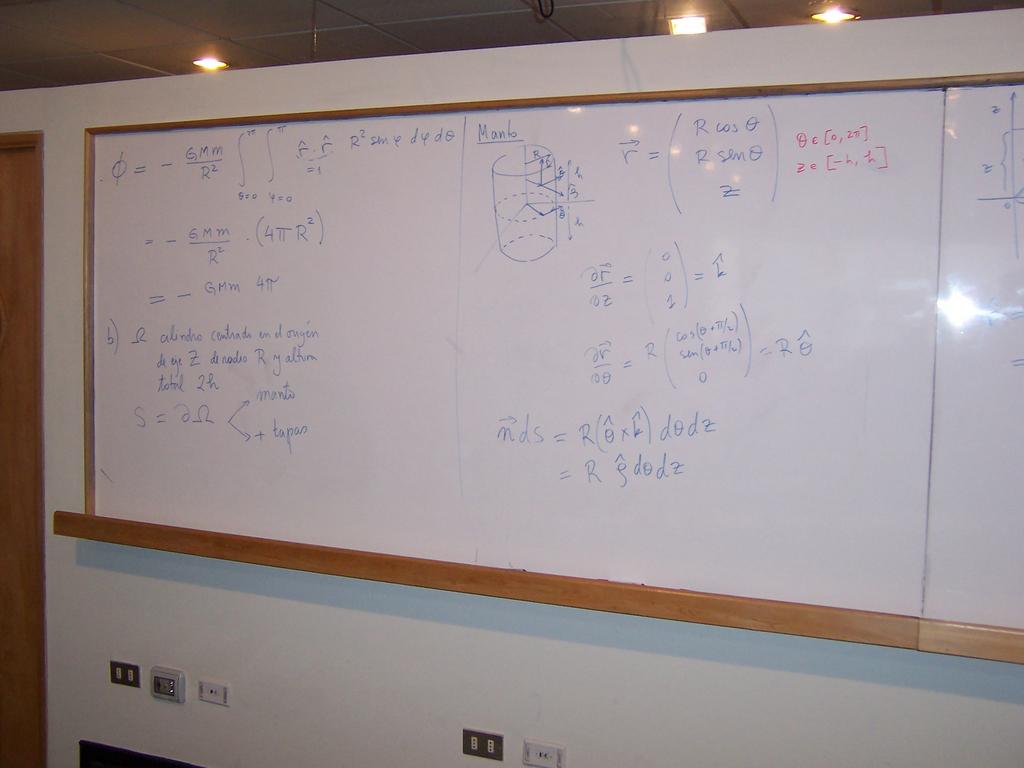 ϕ = - GMm/R² ∫θ=0^2π ∫φ=0^π r̂ · r̂ R² sen φ dφ dθ
=1
= - GMm/R² · (4πR²)
= - GMm 4π
b) Ω cilindro centrado en el origen
de eje Z de radio R y altura
total 2h
S = ∂Ω
manto
+ tapas
Manto
R
h
h
r⃗ = ( R cos θ
R sen θ
z )
θ ∈ [0, 2π]
z ∈ [-h, h]
∂r⃗/∂z = ( 0
0
1 ) = k̂
∂r⃗/∂θ = R ( cos(θ+π/2)
sen(θ+π/2)
0 ) = R θ̂
n⃗ ds = R(θ̂ × k̂) dθ dz
= R ρ̂ dθ dz
z
z